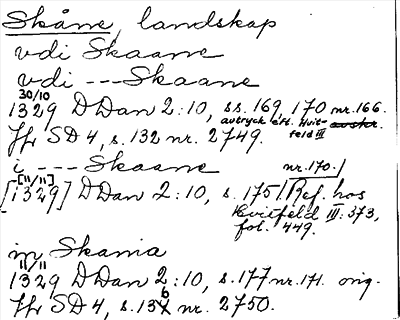 Skåne, landskap
vdi Skaane
vdi --- Skaane
30/10
1329 DDan 2:10, ss. 169, 170 nr. 166.
avtryck eft. Hvit-
feld III
Jfr SD 4, s. 132 nr. 2749.
i --- Skaane nr. 170.
[11/11]
[1329] DDan 2:10, s. 175. Ref. hos
Hvitfeld III: 373,
fol. 449.
in Skania
11/11
1329 DDan 2:10, s. 177 nr. 171. orig.
Jfr SD 4, s. 136 nr. 2750.